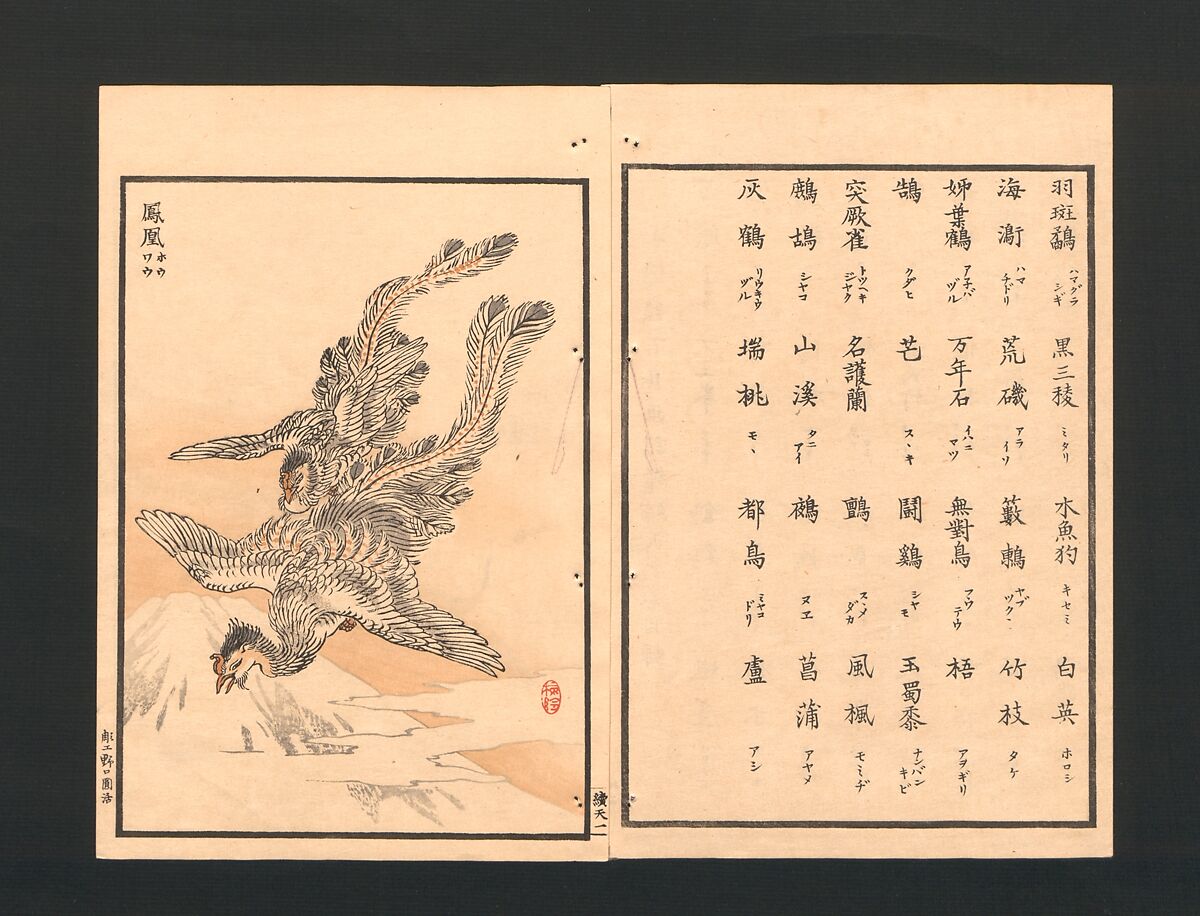 羽斑鷸 ハマグラシギ 黒三稜 ミクリ 水魚狗 キセミ 白英 ホロシ
海鸻 ハマチドリ 荒磯 アライソ 籔鶫 ヤブツクヽ 竹枝 タケ
姉葉鶴 アネバヅル 万年石 イハニマツ 無對鳥 マウテウ 梧 アヲギリ
鵠 クグヒ 芒 スヽキ 鬪鷄 シヤモ 玉蜀黍 ナンバンキビ
突厥雀 トツヘキジヤク 名護蘭 鸇 スヽメダカ 風楓 モミヂ
鷓鴣 シヤコ 山溪 タニアイ 鵺 ヌヱ 菖蒲 アヤメ
灰鶴 リウキウヅル 瑞桃 モヽ 都鳥 ミヤコドリ 蘆 アシ
續天一
鳳凰 ホウワウ
彫工野口圓活